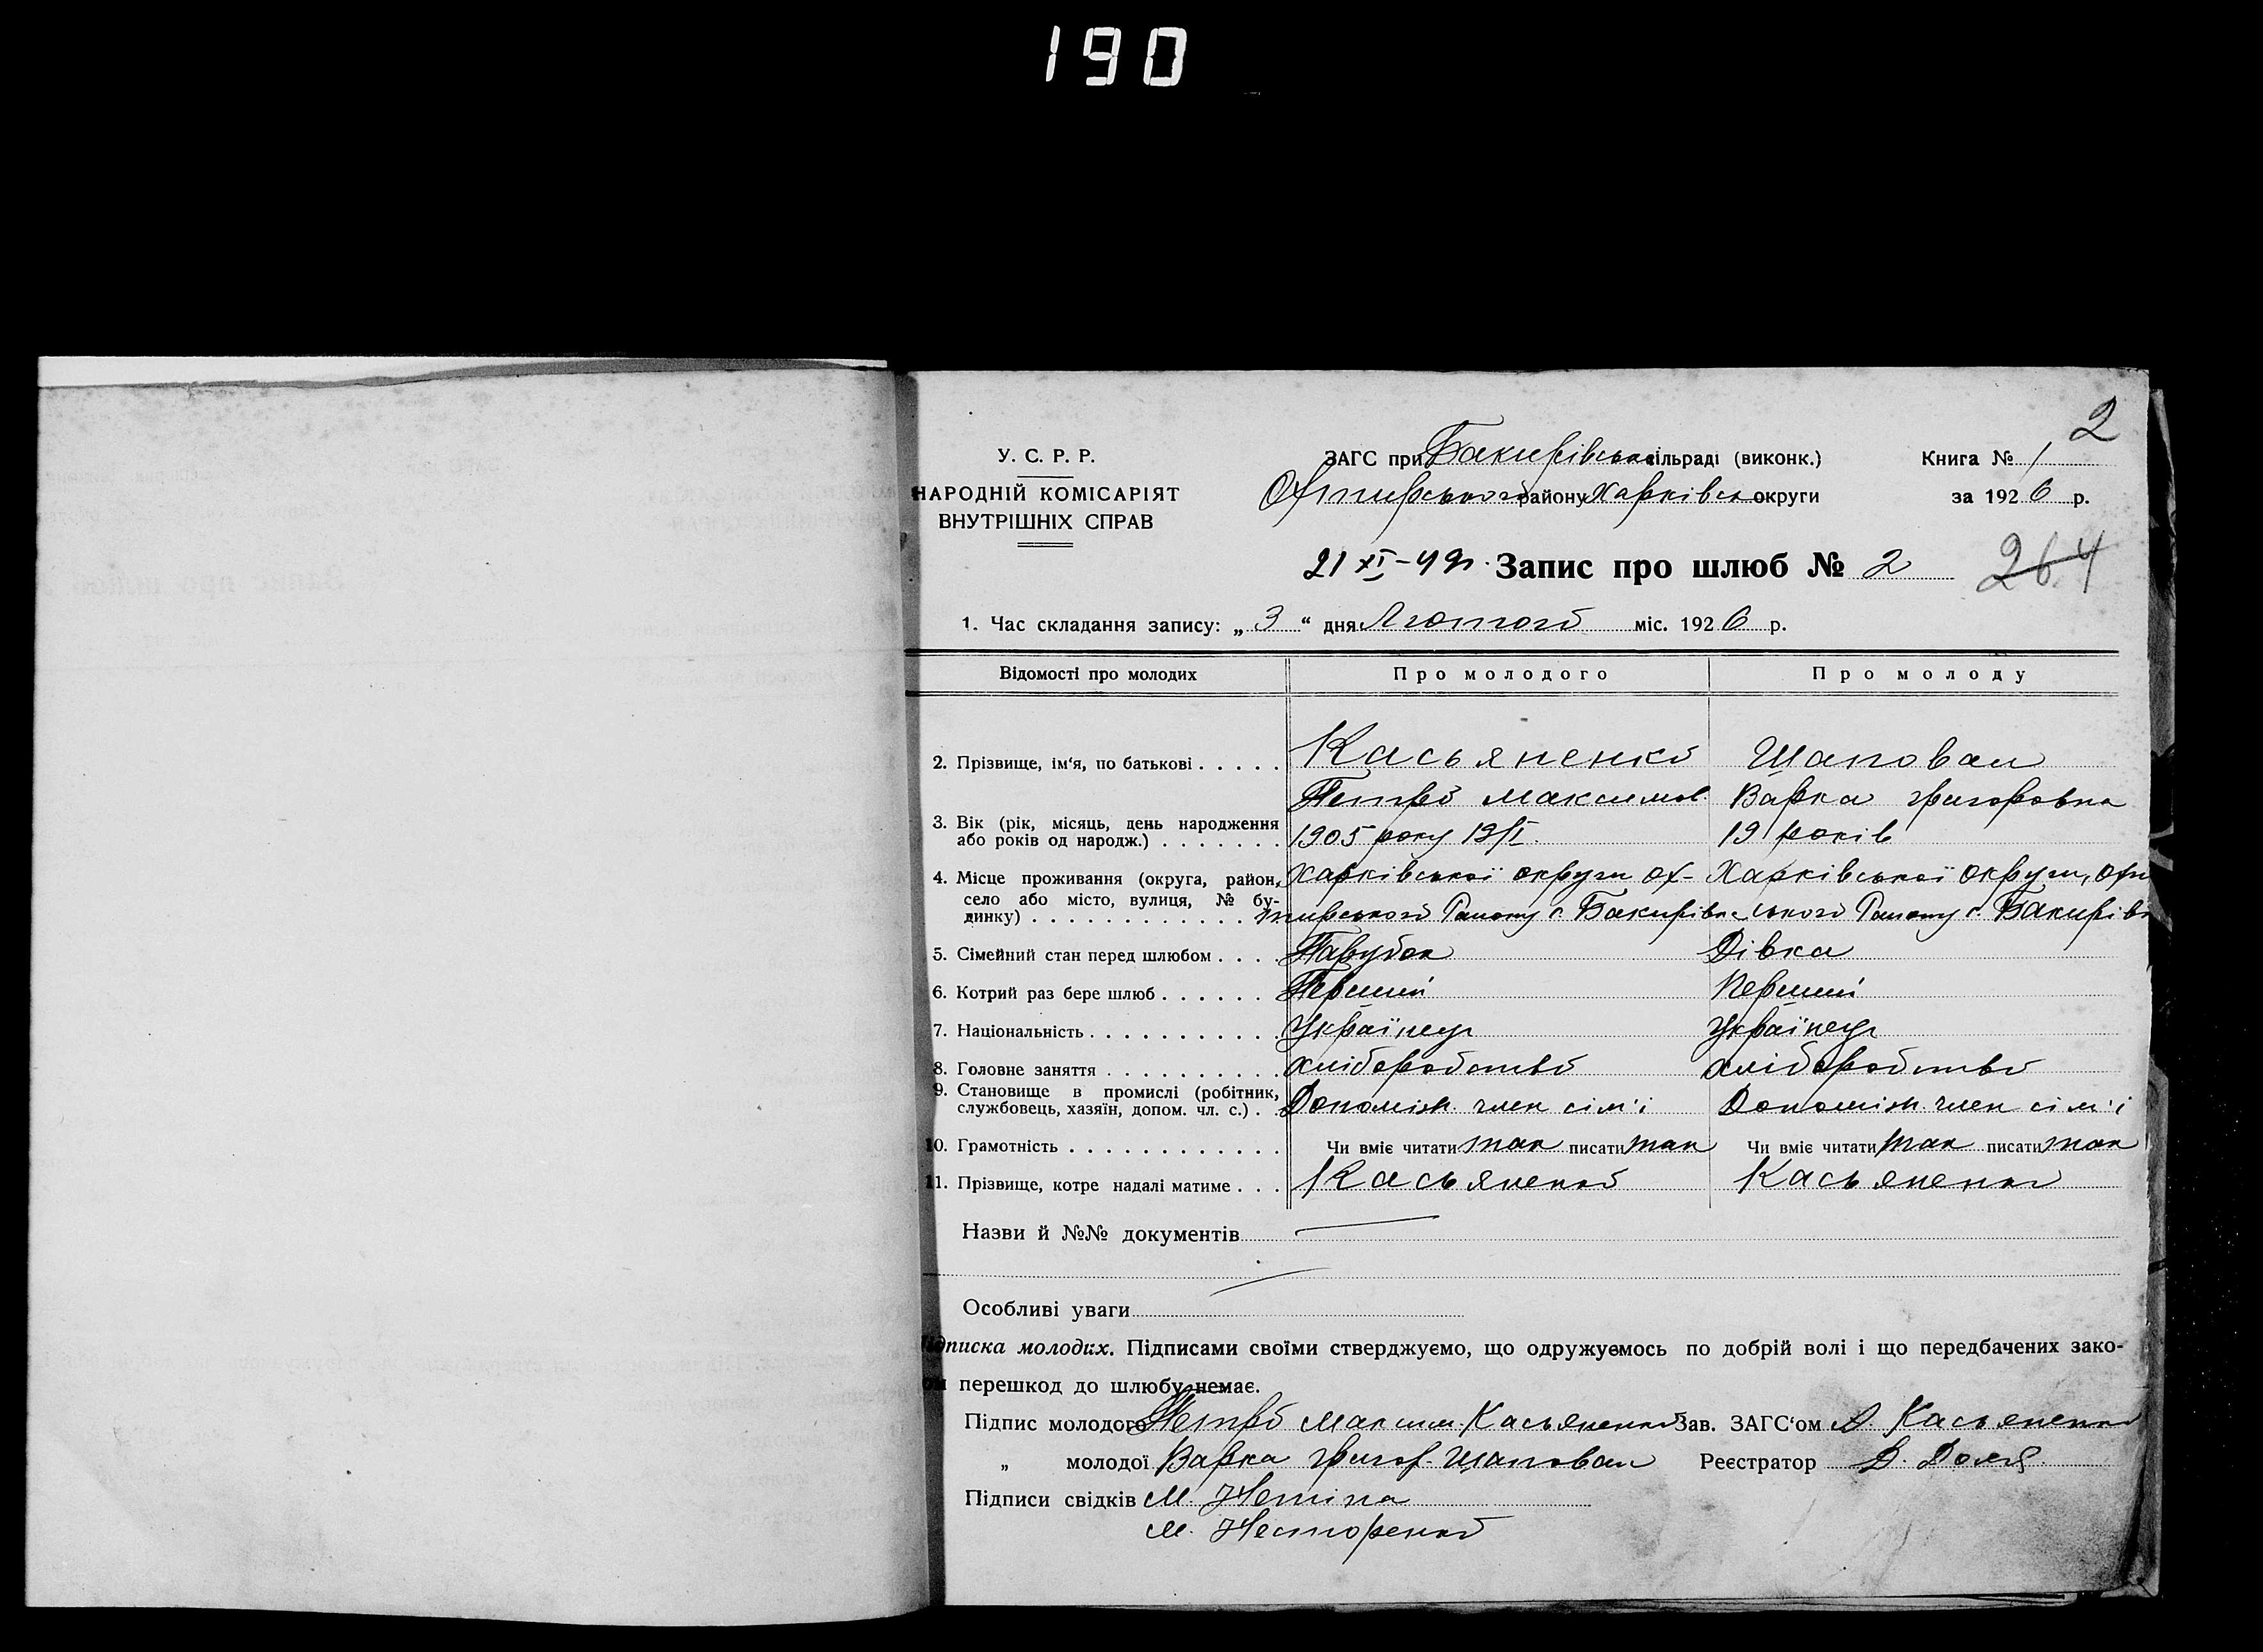 190
2
У. С. Р. Р.
НАРОДНІЙ КОМІСАРІЯТ
ВНУТРІШНІХ СПРАВ
ЗАГС при Бакирівськ сільраді (виконк.)
Охтирського району Харківськ округи
Книга № 1
за 1926 р.
21 XI-49р. Запис про шлюб № 2
264
1. Час складання запису: „ 3 “ дня Лютого міс. 1926 р.
Відомості про молодих Про молодого Про молоду
2. Прізвище, ім‘я, по батькові . . . . . Касьяненко Шаповал
Петро Максимов. Варка Григоровна
3. Вік (рік, місяць, день народження
або років од народж.) . . . . . . . 1905 року 19/I. 19 років
4. Місце проживання (округа, район,
село або місто, вулиця, № бу-
динку) . . . . . . . . . . . . .
Харківської округи Ох-
тирського Району с. Бакирівка
Харківської округи, Охти
ського Району с. Бакирівк
5. Сімейний стан перед шлюбом . . . . Парубок Дівка
6. Котрий раз бере шлюб . . . . . . Перший Перший
7. Національність . . . . . . . . . . . Українец Українец
8. Головне заняття . . . . . . . . . . хліборобство хліборобство
9. Становище в промислі (робітник,
службовець, хазяїн, допом. чл. с.) . . Допоміж. член сім'ї Допоміж. член сім'ї
10. Грамотність . . . . . . . . . . . . Чи вміє читати так писати так Чи вміє читати так писати так
11. Прізвище, котре надалі матиме . . . Касьяненко Касьяненко
Назви й №№ документів
Особливі уваги
Підписка молодих. Підписами своїми стверджуємо, що одружуємось по добрій волі і що передбачених зако-
ом перешкод до шлюбу немає.
Підпис молодого Петро Максим. Касьяненко Зав. ЗАГС‘ом А. Касьяненко
„ молодої Варка Григор. Шаповал Реєстратор
Підписи свідків М.
М. Несторенко